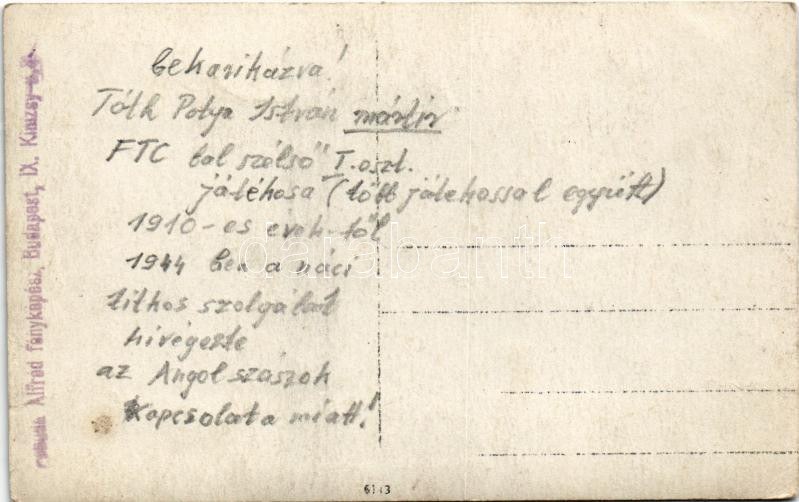 bekarikázva!
Tóth Potya István mártir
FTC bal szélső" I. oszt.
játékosa (több játekossal együtt)
1910-es évek-től
1944 ben a náci
titkos szolgálat
kivégezte
az Angol szászok
Kapcsolata miatt!
Alfréd fényképész, Budapest, IX. Kinizsy-u.
darabanth
6143